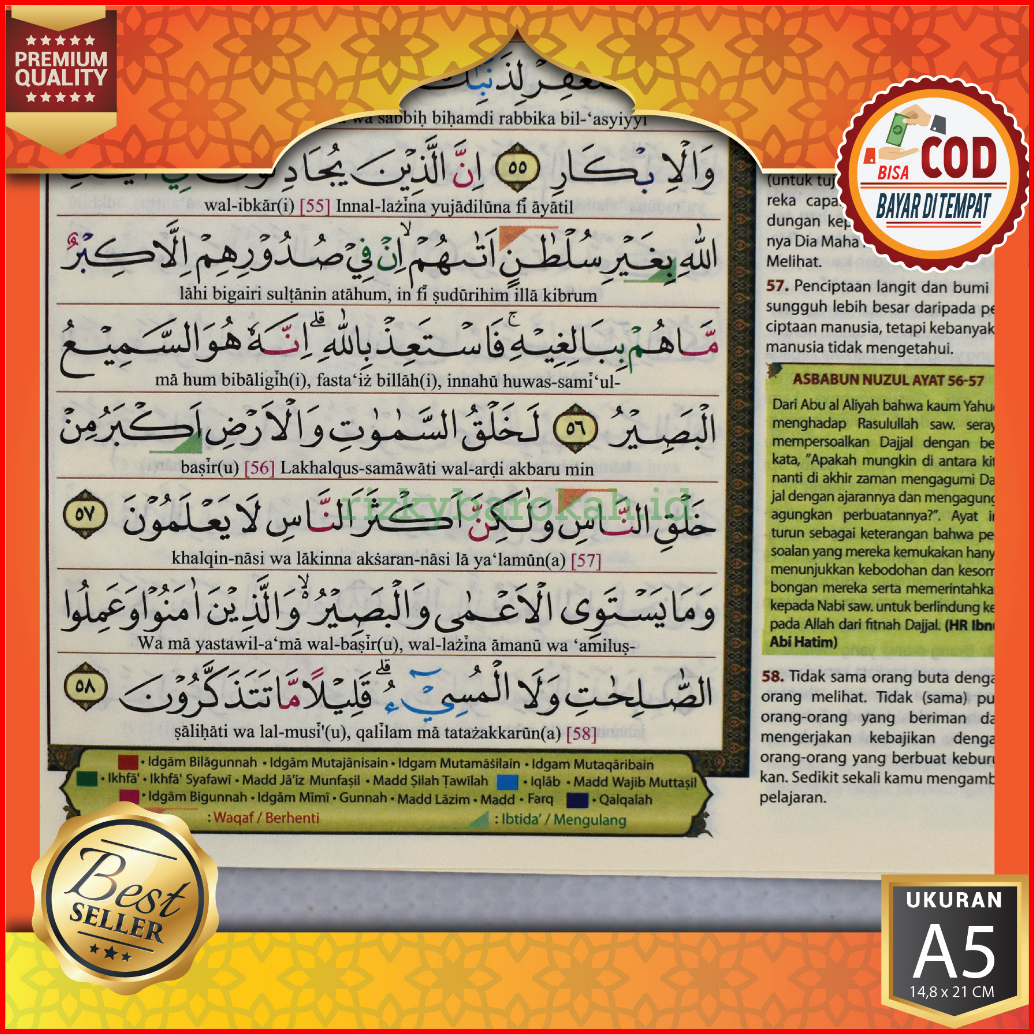 PREMIUM
QUALITY
BISA
COD
BAYAR DI TEMPAT
wa sabbiḥ biḥamdi rabbika bil-‘asyiyyi
وَالْاِبْكَارِ ٥٥ اِنَّ الَّذِيْنَ
wal-ibkār(i) [55] Innal-lażīna yujādilūna fī āyātil
اللّٰهِ بِغَيْرِ سُلْطٰنٍ اَتٰىهُمْ ۙ اِنْ فِيْ صُدُوْرِهِمْ اِلَّا كِبْرٌ
lāhi bigairi sulṭānin atāhum, in fī ṣudūrihim illā kibrum
مَّا هُمْ بِبَالِغِيْهِ ۚ فَاسْتَعِذْ بِاللّٰهِ ۗ اِنَّهٗ هُوَ السَّمِيْعُ
mā hum bibāligīh(i), fasta‘iż billāh(i), innahū huwas-samī‘ul-
الْبَصِيْرُ ٥٦ لَخَلْقُ السَّمٰوٰتِ وَالْاَرْضِ اَكْبَرُ مِنْ
baṣīr(u) [56] Lakhalqus-samāwāti wal-arḍi akbaru min
خَلْقِ النَّاسِ وَلٰكِنَّ اَكْثَرَ النَّاسِ لَا يَعْلَمُوْنَ ٥٧
rizkybarokah.id
khalqin-nāsi wa lākinna akṡaran-nāsi lā ya‘lamūn(a) [57]
وَمَا يَسْتَوِى الْاَعْمٰى وَالْبَصِيْرُ ۙ وَالَّذِيْنَ اٰمَنُوْا وَعَمِلُوا
Wa mā yastawil-a‘mā wal-baṣīr(u), wal-lażīna āmanū wa ‘amiluṣ-
الصّٰلِحٰتِ وَلَا الْمُسِيْۤءُ ۗ قَلِيْلًا مَّا تَتَذَكَّرُوْنَ ٥٨
ṣāliḥāti wa lal-musī'(u), qalīlam mā tatażakkarūn(a) [58]
• Idgām Bilāgunnah • Idgām Mutajānisain • Idgam Mutamāṡilain • Idgam Mutaqāribain
• Ikhfā' • Ikhfā' Syafawī • Madd Jā'iz Munfaṣil • Madd Ṣilah Ṭawīlah • Iqlāb • Madd Wajib Muttaṣil
• Idgām Bigunnah • Idgām Mīmī • Gunnah • Madd Lāzim • Madd • Farq • Qalqalah
: Waqaf / Berhenti : Ibtida' / Mengulang
(untuk
reka
dungan
nya Dia Maha
Melihat.
57. Penciptaan langit dan bumi
sungguh lebih besar daripada pe
ciptaan manusia, tetapi kebanyak
manusia tidak mengetahui.
ASBABUN NUZUL AYAT 56-57
Dari Abu al Aliyah bahwa kaum Yahu
menghadap Rasulullah saw. seray
mempersoalkan Dajjal dengan be
kata, "Apakah mungkin di antara kit
nanti di akhir zaman mengagumi Da
jal dengan ajarannya dan mengagung
agungkan perbuatannya?". Ayat
turun sebagai keterangan bahwa pe
soalan yang mereka kemukakan hany
menunjukkan kebodohan dan kesom
bongan mereka serta memerintahka
kepada Nabi saw. untuk berlindung ke
pada Allah dari fitnah Dajjal. (HR Ibnu
Abi Hatim)
58. Tidak sama orang buta denga
orang melihat. Tidak (sama) pu
orang-orang yang beriman da
mengerjakan kebajikan denga
orang-orang yang berbuat kebur
kan. Sedikit sekali kamu mengamb
pelajaran.
Best
SELLER
UKURAN
A5
14,8 x 21 CM